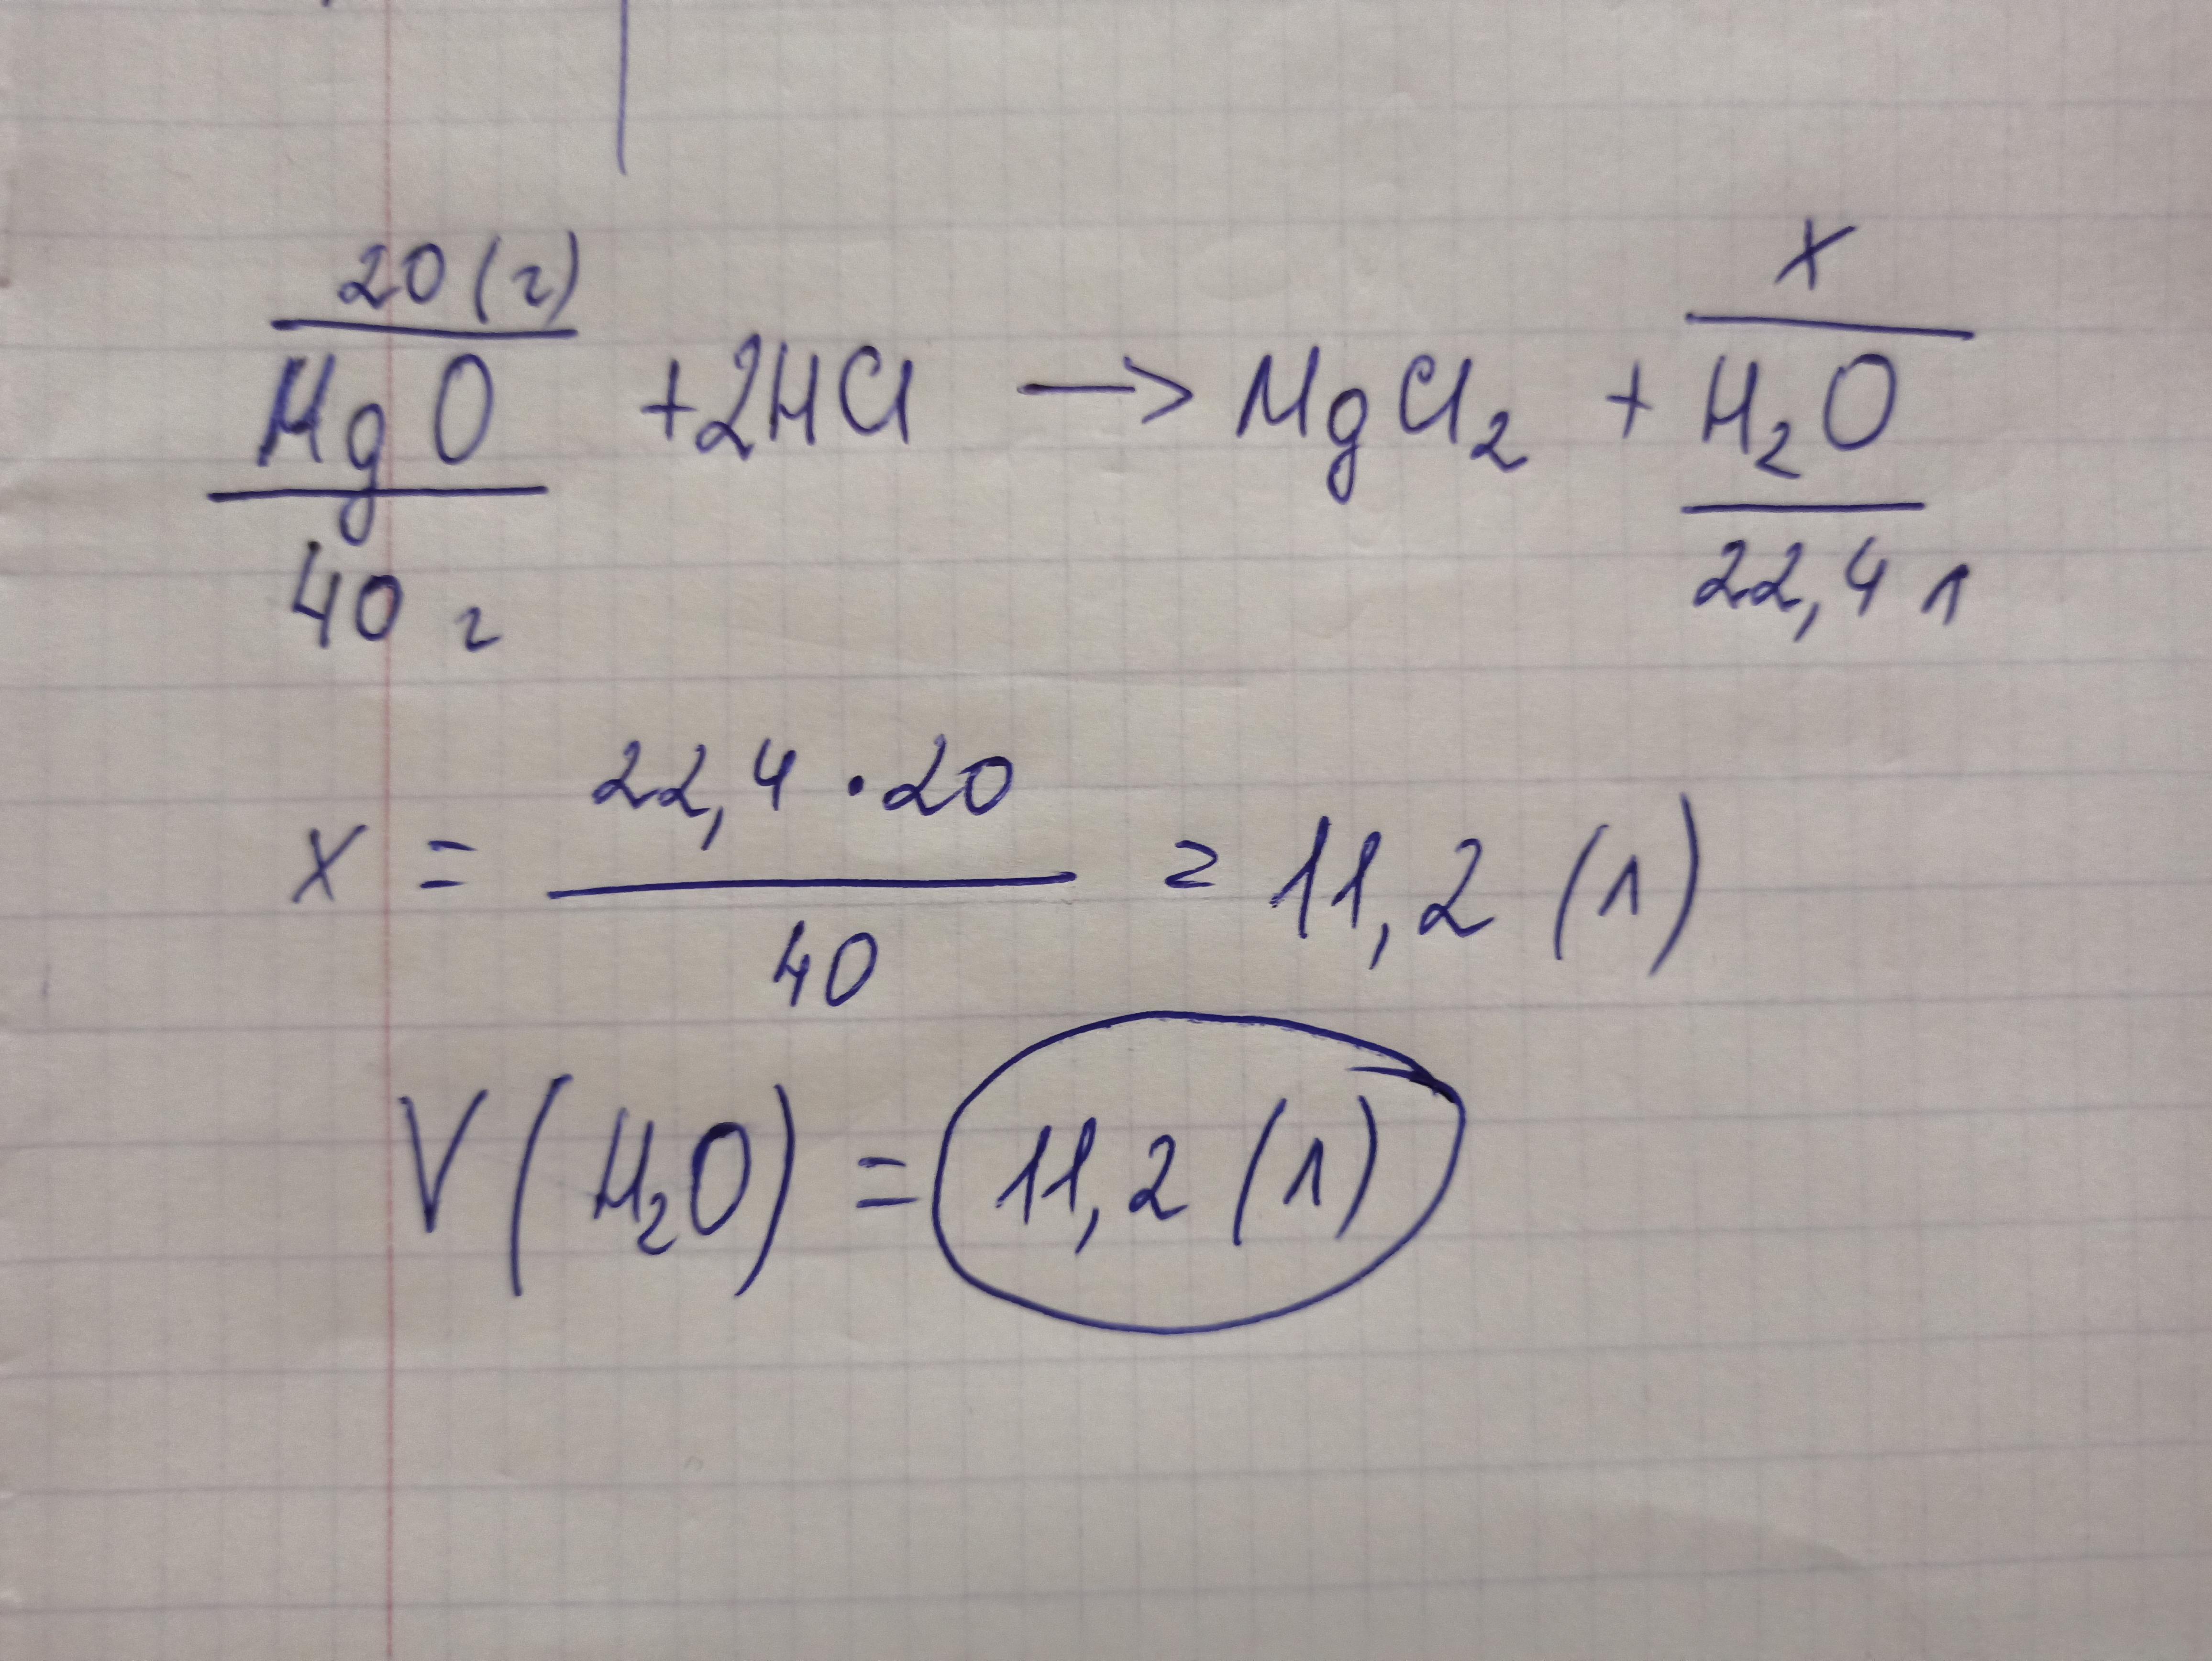 20 (г) x
MgO + 2HCl → MgCl₂ + H₂O
40 г 22,4 л
x = 22,4 · 20 / 40 = 11,2 (л)
V (H₂O) = 11,2 (л)